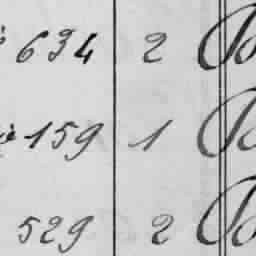 634 2
159 1
529 2